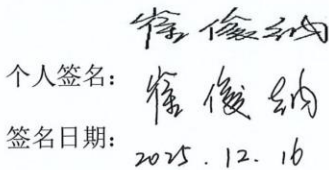 崔俊纳
个人签名：崔俊纳
签名日期：2025.12.16